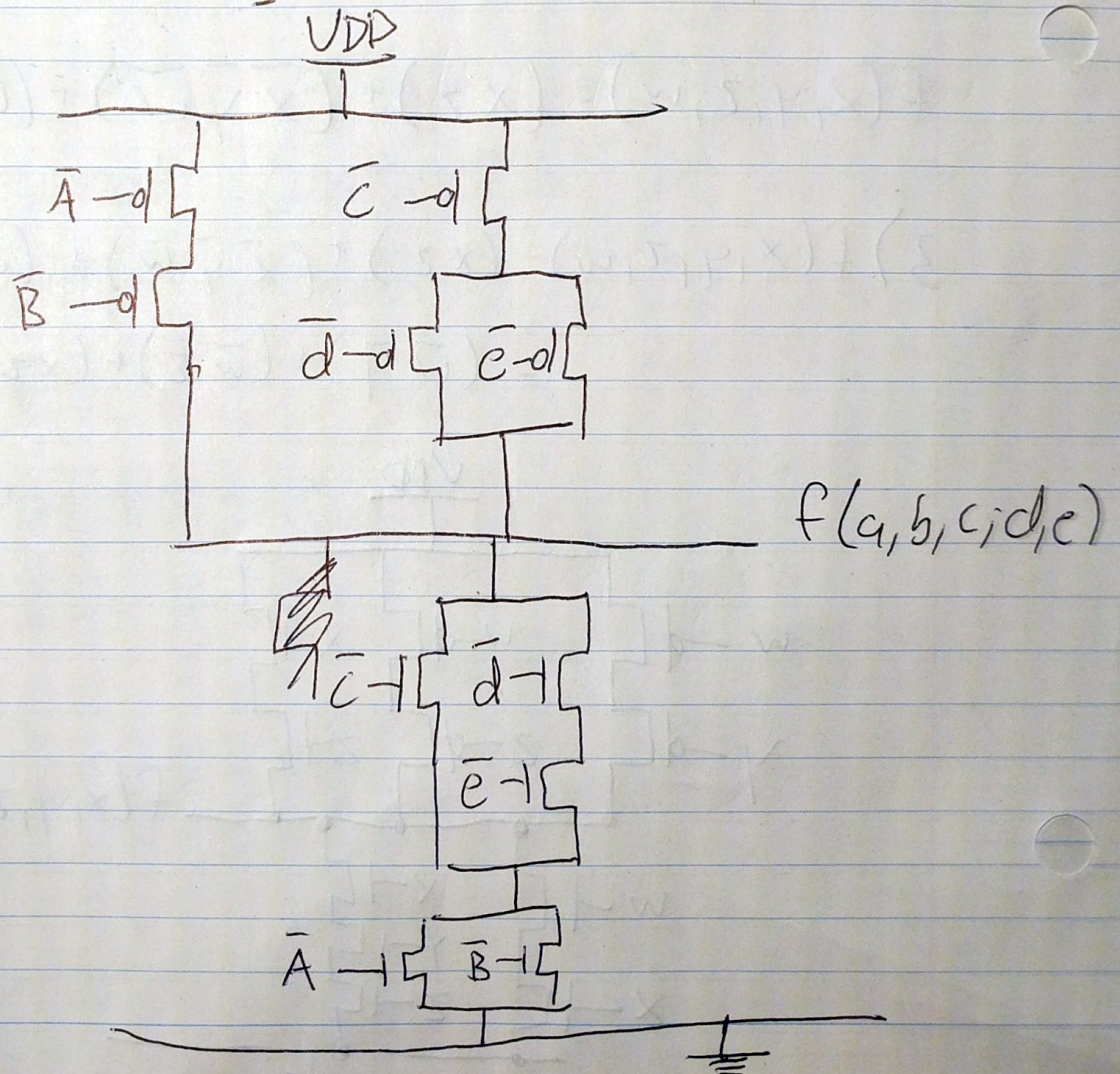 VDD
A̅
C̅
B̅
d̅
e̅
f(a,b,c,d,e)
c̅
d̅
e̅
A̅
B̅